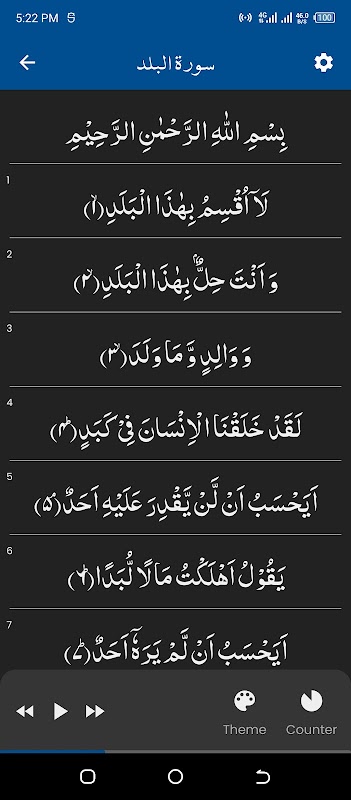 5:22 PM
4G
46.0
B/S
100
سورة البلد
بِسْمِ اللهِ الرَّحْمٰنِ الرَّحِيْمِ
1
لَاۤ اُقْسِمُ بِهٰذَا الْبَلَدِ(۱ۙ)
2
وَ اَنْتَ حِلٌّۢ بِهٰذَا الْبَلَدِ(۲ۙ)
3
وَ وَالِدٍ وَّ مَا وَلَدَ(۳ۙ)
4
لَقَدْ خَلَقْنَا الْاِنْسَانَ فِیْ كَبَدٍؕ(۴)
5
اَیَحْسَبُ اَنْ لَّنْ یَّقْدِرَ عَلَیْهِ اَحَدٌۘ(۵)
6
یَقُوْلُ اَهْلَكْتُ مَالًا لُّبَدًاؕ(۶)
7
اَیَحْسَبُ اَنْ لَّمْ یَرَهٗۤ اَحَدٌؕ(۷)
Theme
Counter